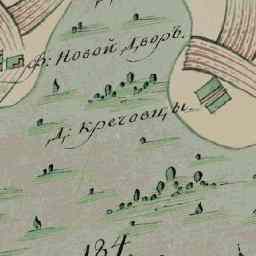 Ф: Новой Дворъ.
Д: Кречовцы.
184